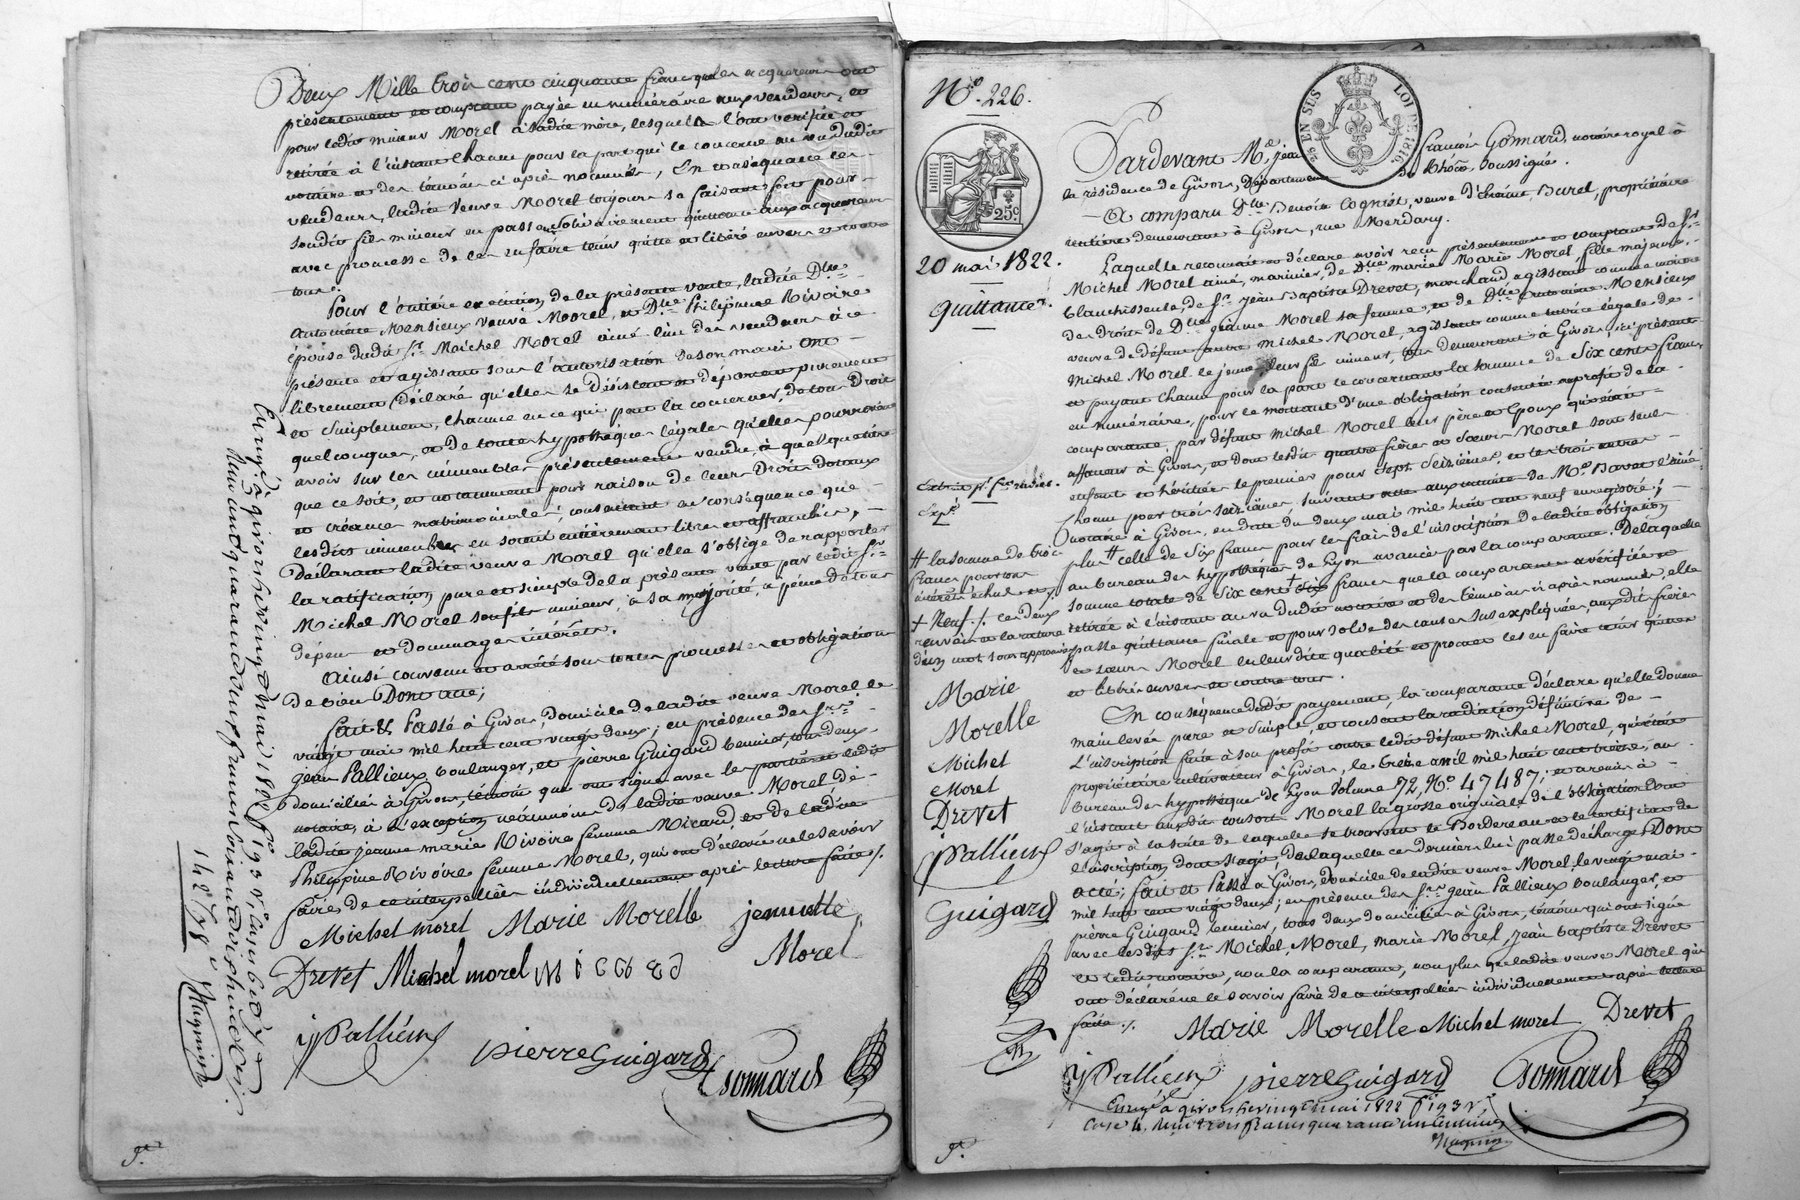 Deux Mille trois cent cinquante francs que les acquéreurs ont
présentement et comptant payée en numéraire aux vendeurs, et
pour ledit mineur Morel à ladite mère, lesquels l'ont vérifiée et
retirée à l'instant chacun pour la part qui le concerne au vu dudit
notaire et des témoins ci après nommés, En conséquence les
vendeurs, ladite Veuve Morel toujours se faisant fort pour
sondit fils mineur en passent solidairement quittance aux acquéreurs
avec promesse de les en faire tenir quitte et libéré envers et contre
tous.
Pour l'entière exécution de la présente vente, ladite Dlle
Antoinette Mensieux veuve Morel, et Dlle Philippine Rivoire
épouse dudit Sr. Michel Morel ainé l'un des vendeurs à ce
présente et agissant sous l'autorisation de son mari ont
librement déclaré qu'elles se désistent et départent purement
et simplement, chacune en ce qui peut la concerner, de tous droits
quelconques, et de toutes hypothèques légales qu'elles pourroient
avoir sur les immeubles présentement vendus, à quelque titre
que ce soit, et notamment pour raison de leurs Droits dotaux
et créances matrimoniales; consentant en conséquence que
lesdits immeubles en soient entièrement libres et affranchis,
Déclarant ladite veuve Morel qu'elle s'oblige de rapporter
la ratification pure et simple de la présente vente par ledit Sr.
Michel Morel son fils mineur, à sa majorité, à peine de tous
dépens et dommages intérêts.
Ainsi convenu et arrêté sous toutes promesses et obligations
de bien Dont acte;
fait & Passé à Givors, domicile de ladite veuve Morel le
vingt mai mil huit cent vingt deux; en présence des Srs
jean Pallieux, boulanger, et pierre Guigard cennier, tous deux
domiciliés à Givors, témoins qui ont signé avec les parties et ledit
notaire, à l'exception néanmoins de ladite veuve Morel de
ladite jeanne marie Rivoire femme Micard, et de ladite
Philippine Rivoire femme Morel, qui ont déclaré ne le savoir
faire de ce interpellées individuellement après lecture faite.
Michel morel Marie Morelle jennette
Morel
Drevet Michel morel
jpallieux
pierre Guigard Gonnard
1822
No. 226.
25 EN SUS LOI DE 1816
25c
20 mai 1822.
quittance
Pardevant Me. jean françois Gonnard, notaire royal à
la résidence de Givors, Département du Rhône, soussigné.
A comparu Dlle. Benoite Cogniet, veuve d'étienne Burel, propriétaire
rentière demeurant à Givors, rue Merdary.
Laquelle reconnait et déclare avoir reçu présentement et comptant de Sr.
Michel Morel ainé, marinier, de Dlle marie Marie Morel, fille majeure,
blanchisseuse, de Sr. jean Baptiste Drevet, marchand, agissant comme maitre
des Droits de Dlle jeanne Morel sa femme, et de Dlle Antoinette Mensieux
veuve de défunt autre Michel Morel, agissant comme tutrice légale de
Michel Morel le jeune leur fils mineur, tous demeurant à Givors, ici présents
et payant chacun pour la part le concernant la somme de Six cents francs
en numéraire, pour le montant d'une obligation consentie au profit de la
comparante, par défunt Michel Morel leur père et époux qui était
affaneur à Givors, et dont lesdits quatre frères et sœurs Morel sont seuls
enfants et héritiers le premier pour sept seizièmes et les trois autres
chacun pour trois seizièmes, suivant acte aux minutes de Me Bavet l'ainé
notaire à Givors, en date du deux mai mil huit cent neuf enregistré;
plus # celle de Six francs pour les frais de l'inscription de ladite obligation
au bureau des hypothèques de Lyon avancés par la comparante. De laquelle
somme totale de six cent + six francs que la comparante a vérifiée et
retirée à l'instant au vu dudit notaire et des témoins ci après nommés, elle
passe quittance finale et pour solde des causes sus expliquées, auxdits frères
et sœurs Morel en leur dite qualité et promet les en faire tenir quittes
et libérés envers et contre tous.
# la somme de trois
francs pour les
intérêts échus
+ Neuf ./. ces deux
renvois et la rature
d'un mot sont approuvés
Marie
Morelle
Michel
Morel
Drevet
jpallieux
Guigard
En conséquence dudit payement, la comparante déclare qu'elle donne
main levée pure et simple, et consent la radiation définitive de
L'inscription faite à son profit contre ledit défunt Michel Morel, qui était
propriétaire cultivateur à Givors, le treize avril mil huit cent treize, au
bureau des hypothèques de Lyon Volume 72, No. 47487; et a remis à
l'instant auxdits consorts Morel la grosse originale de l'obligation dont
s'agit à la suite de laquelle se trouvent le Bordereau et le certificat de
l'inscription dont s'agit, de laquelle ces derniers lui passe décharge, Dont
acte; fait et Passé à Givors, domicile de ladite veuve Morel, le vingt mai
mil huit cent vingt deux; en présence des Srs jean Pallieux boulanger, et
pierre Guigard cennier, tous deux domiciliés à Givors, témoins qui ont signé
avec lesdits Sr. Michel Morel, marie Morel, jean baptiste Drevet
et ledit notaire, non la comparante, non plus que ladite veuve Morel qui
ont déclaré ne le savoir faire de ce interpellées individuellement après lecture
faite ./.
Marie Morelle Michel morel Drevet
jpallieux pierre Guigard Gonnard